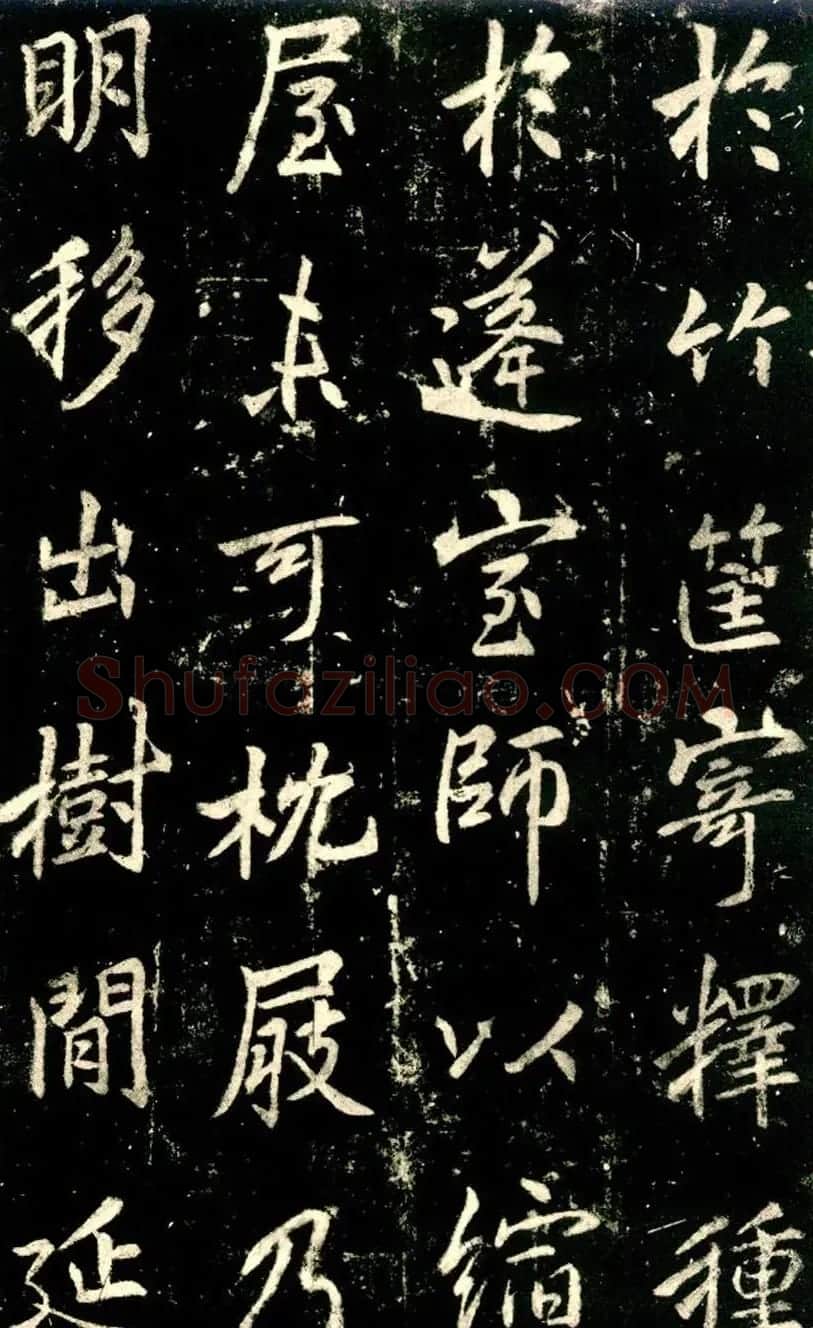 於竹筐寄釋種
於蓬室師以縮
屋未可枕屐乃
明移出樹間延
Shufaziliao.COM